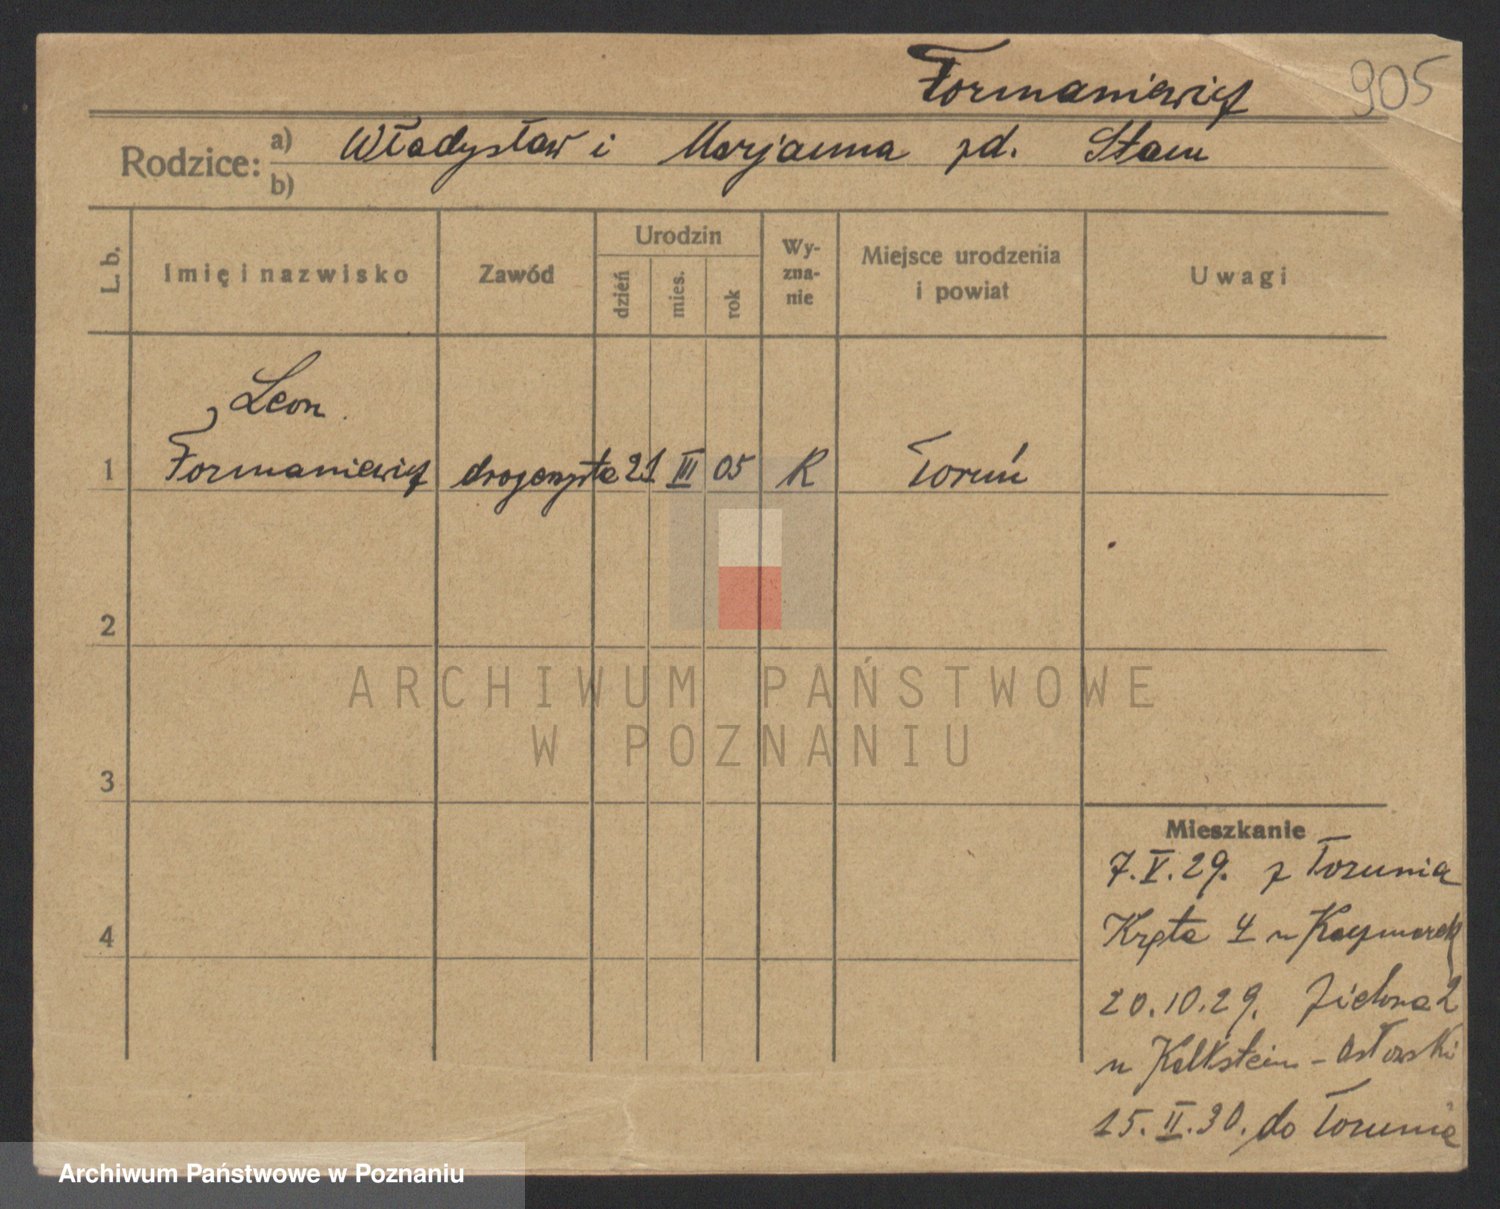 Formaniewicz 905
Rodzice: a) Władysław i Marjanna zd. Stam
b)
L. b. Imię i nazwisko Zawód Urodzin dzień mies. rok Wy-zna-nie Miejsce urodzenia i powiat Uwagi
Leon
1 Formaniewicz drogerzysta 21 III 05 R Toruń
2
ARCHIWUM PAŃSTWOWE
W POZNANIU
3
Mieszkanie
7.V.29. z Torunia
4
Kręta 4 u Kaczmarek
20.10.29. Zielona 2
u Kalkstein - Osłowski
15.II.30. do Torunia
Archiwum Państwowe w Poznaniu